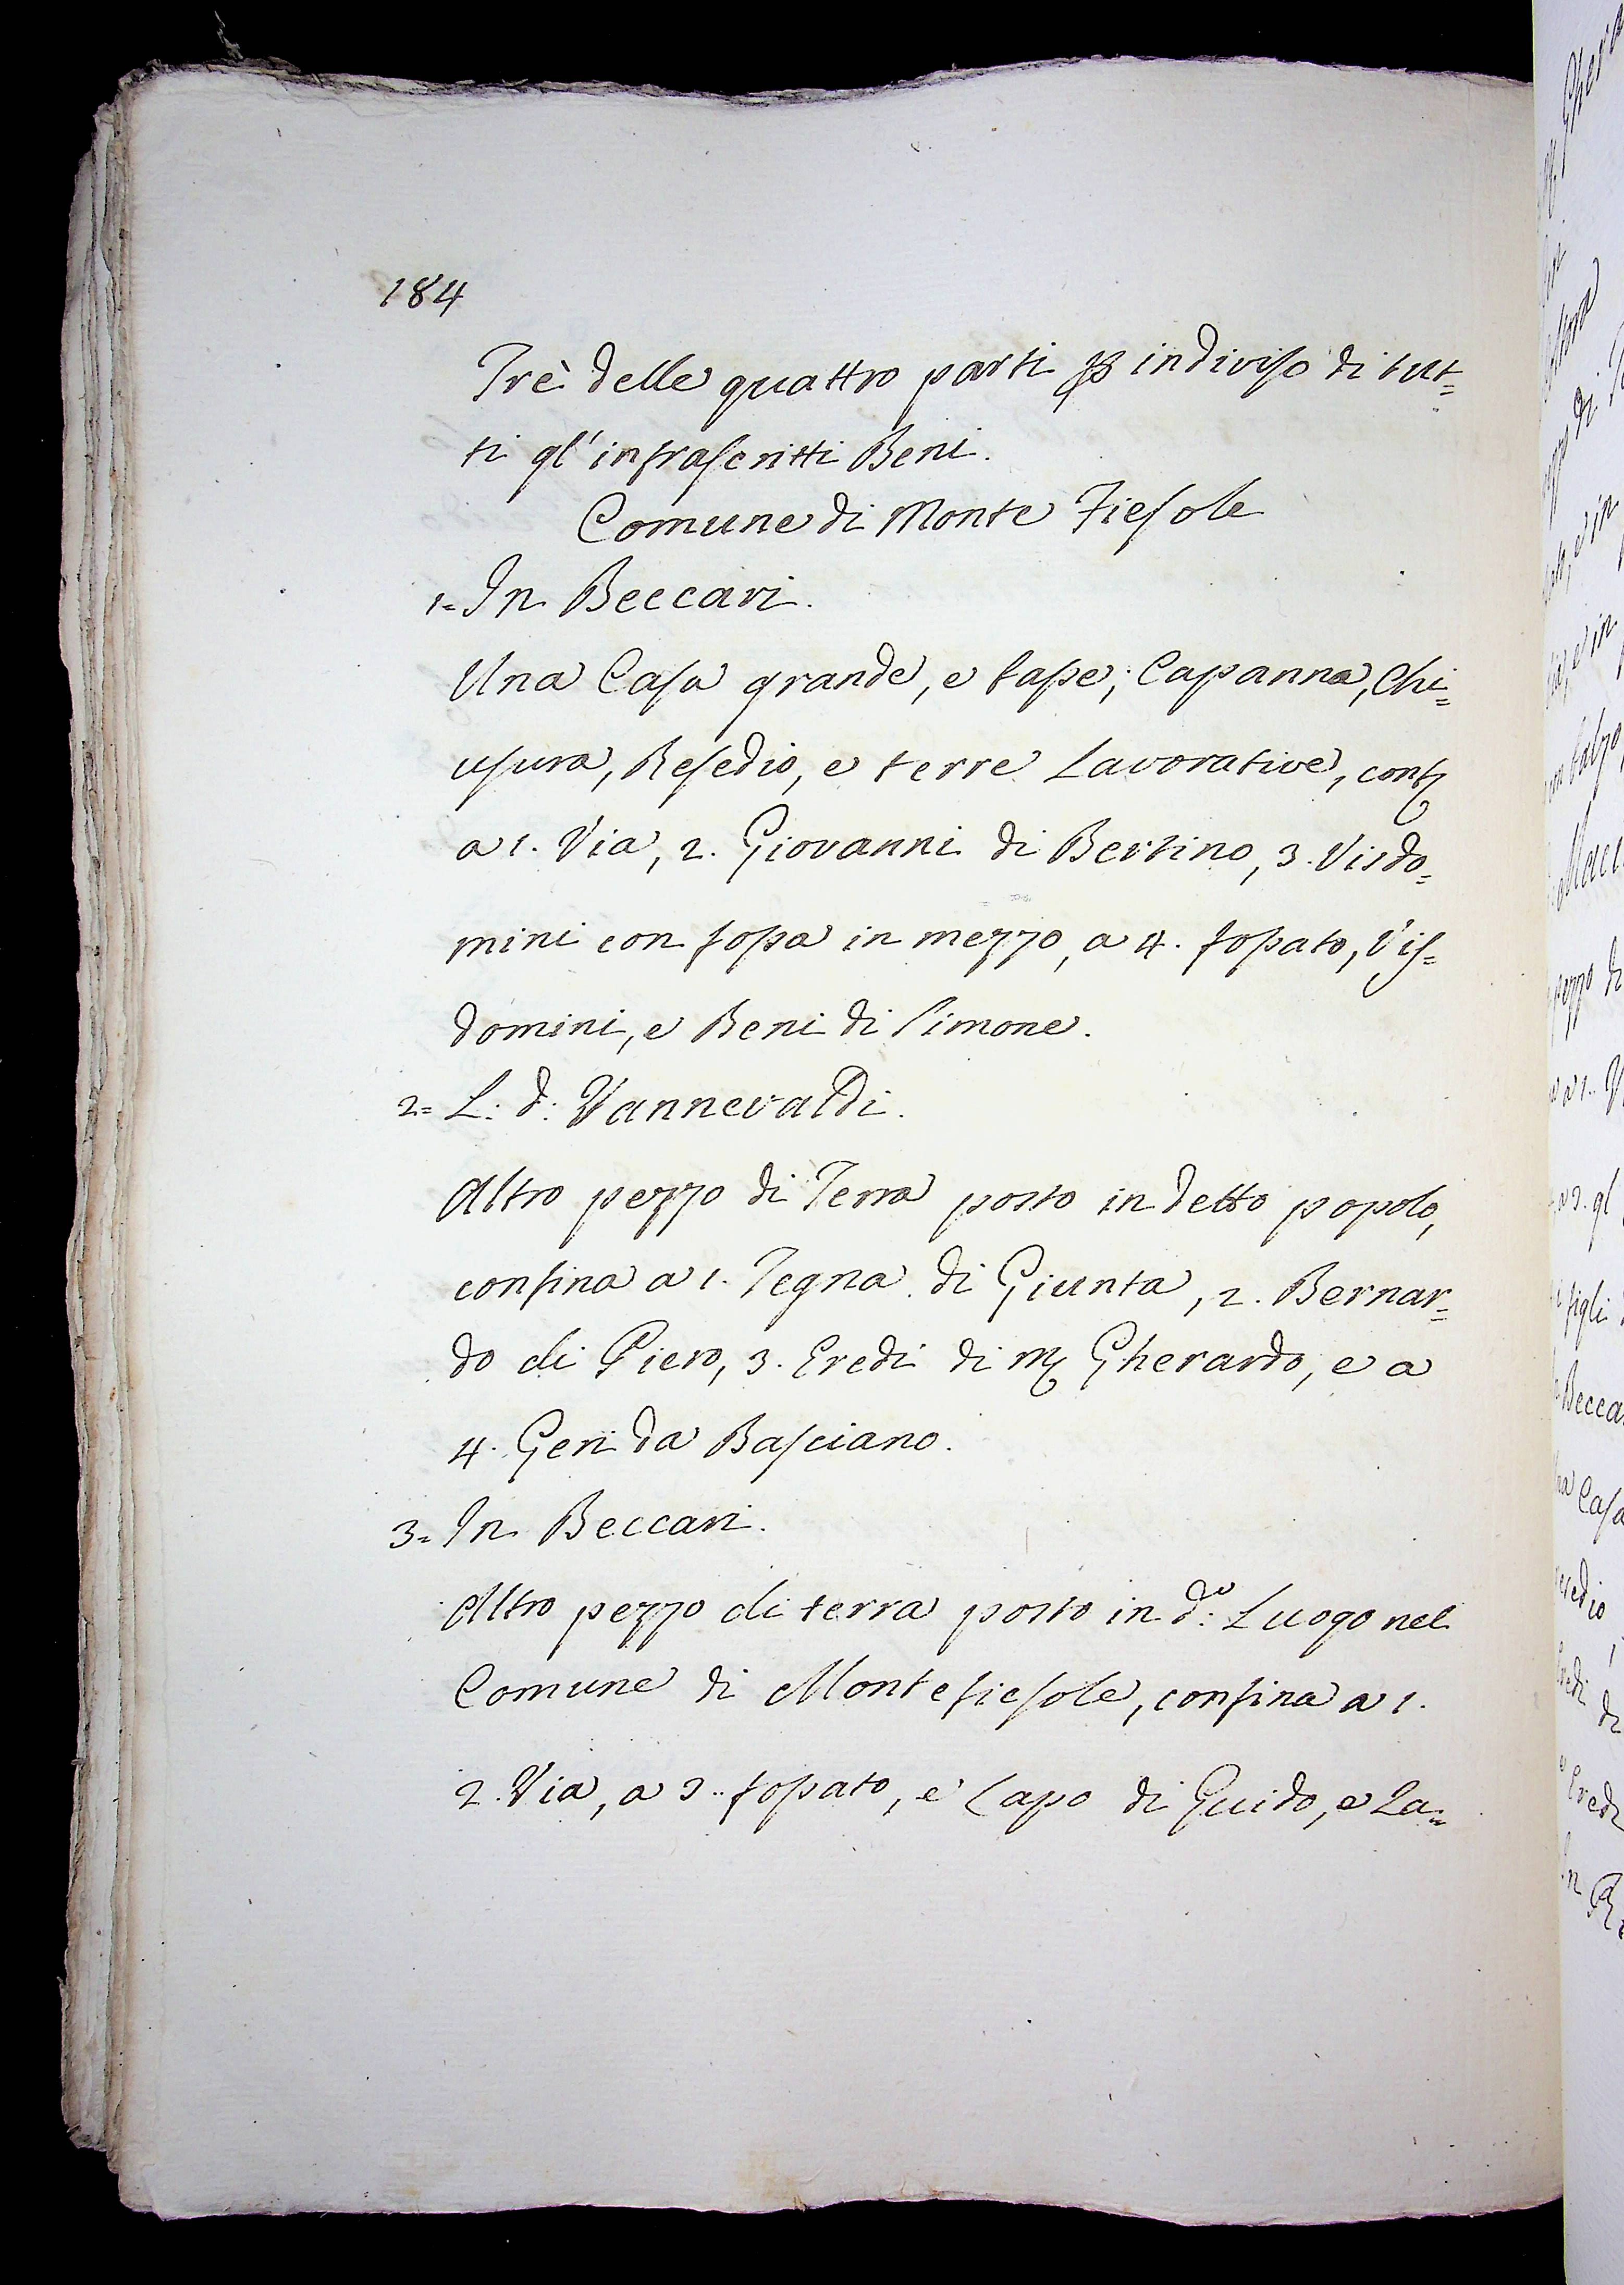 184
Trè delle quattro parti ꝑ indiviso di tut=
ti gl'infrascritti Beni.
Comune di Monte Fiesole
1= In Beccari.
Una Casa grande, e basse; Capanna, Chi=
usura, Resedio, e terre Lavorative, conf.
a 1. Via, 2. Giovanni di Bertino, 3. Visdo=
mini con fossa in mezzo, a 4. fossato, Vis=
domini, e Beni di Simone.
2= L: d: Vannevaldi.
Altro pezzo di Terra posto in detto popolo,
confina a 1. Tegna di Giunta, 2. Bernar=
do di Piero, 3. Eredi di M. Gherardo, e a
4. Geri da Basciano.
3= In Beccari.
Altro pezzo di terra posto in d.º Luogo nel
Comune di Montefiesole, confina a 1.
2. Via, a 3. fossato, e Capo di Guido, e La=